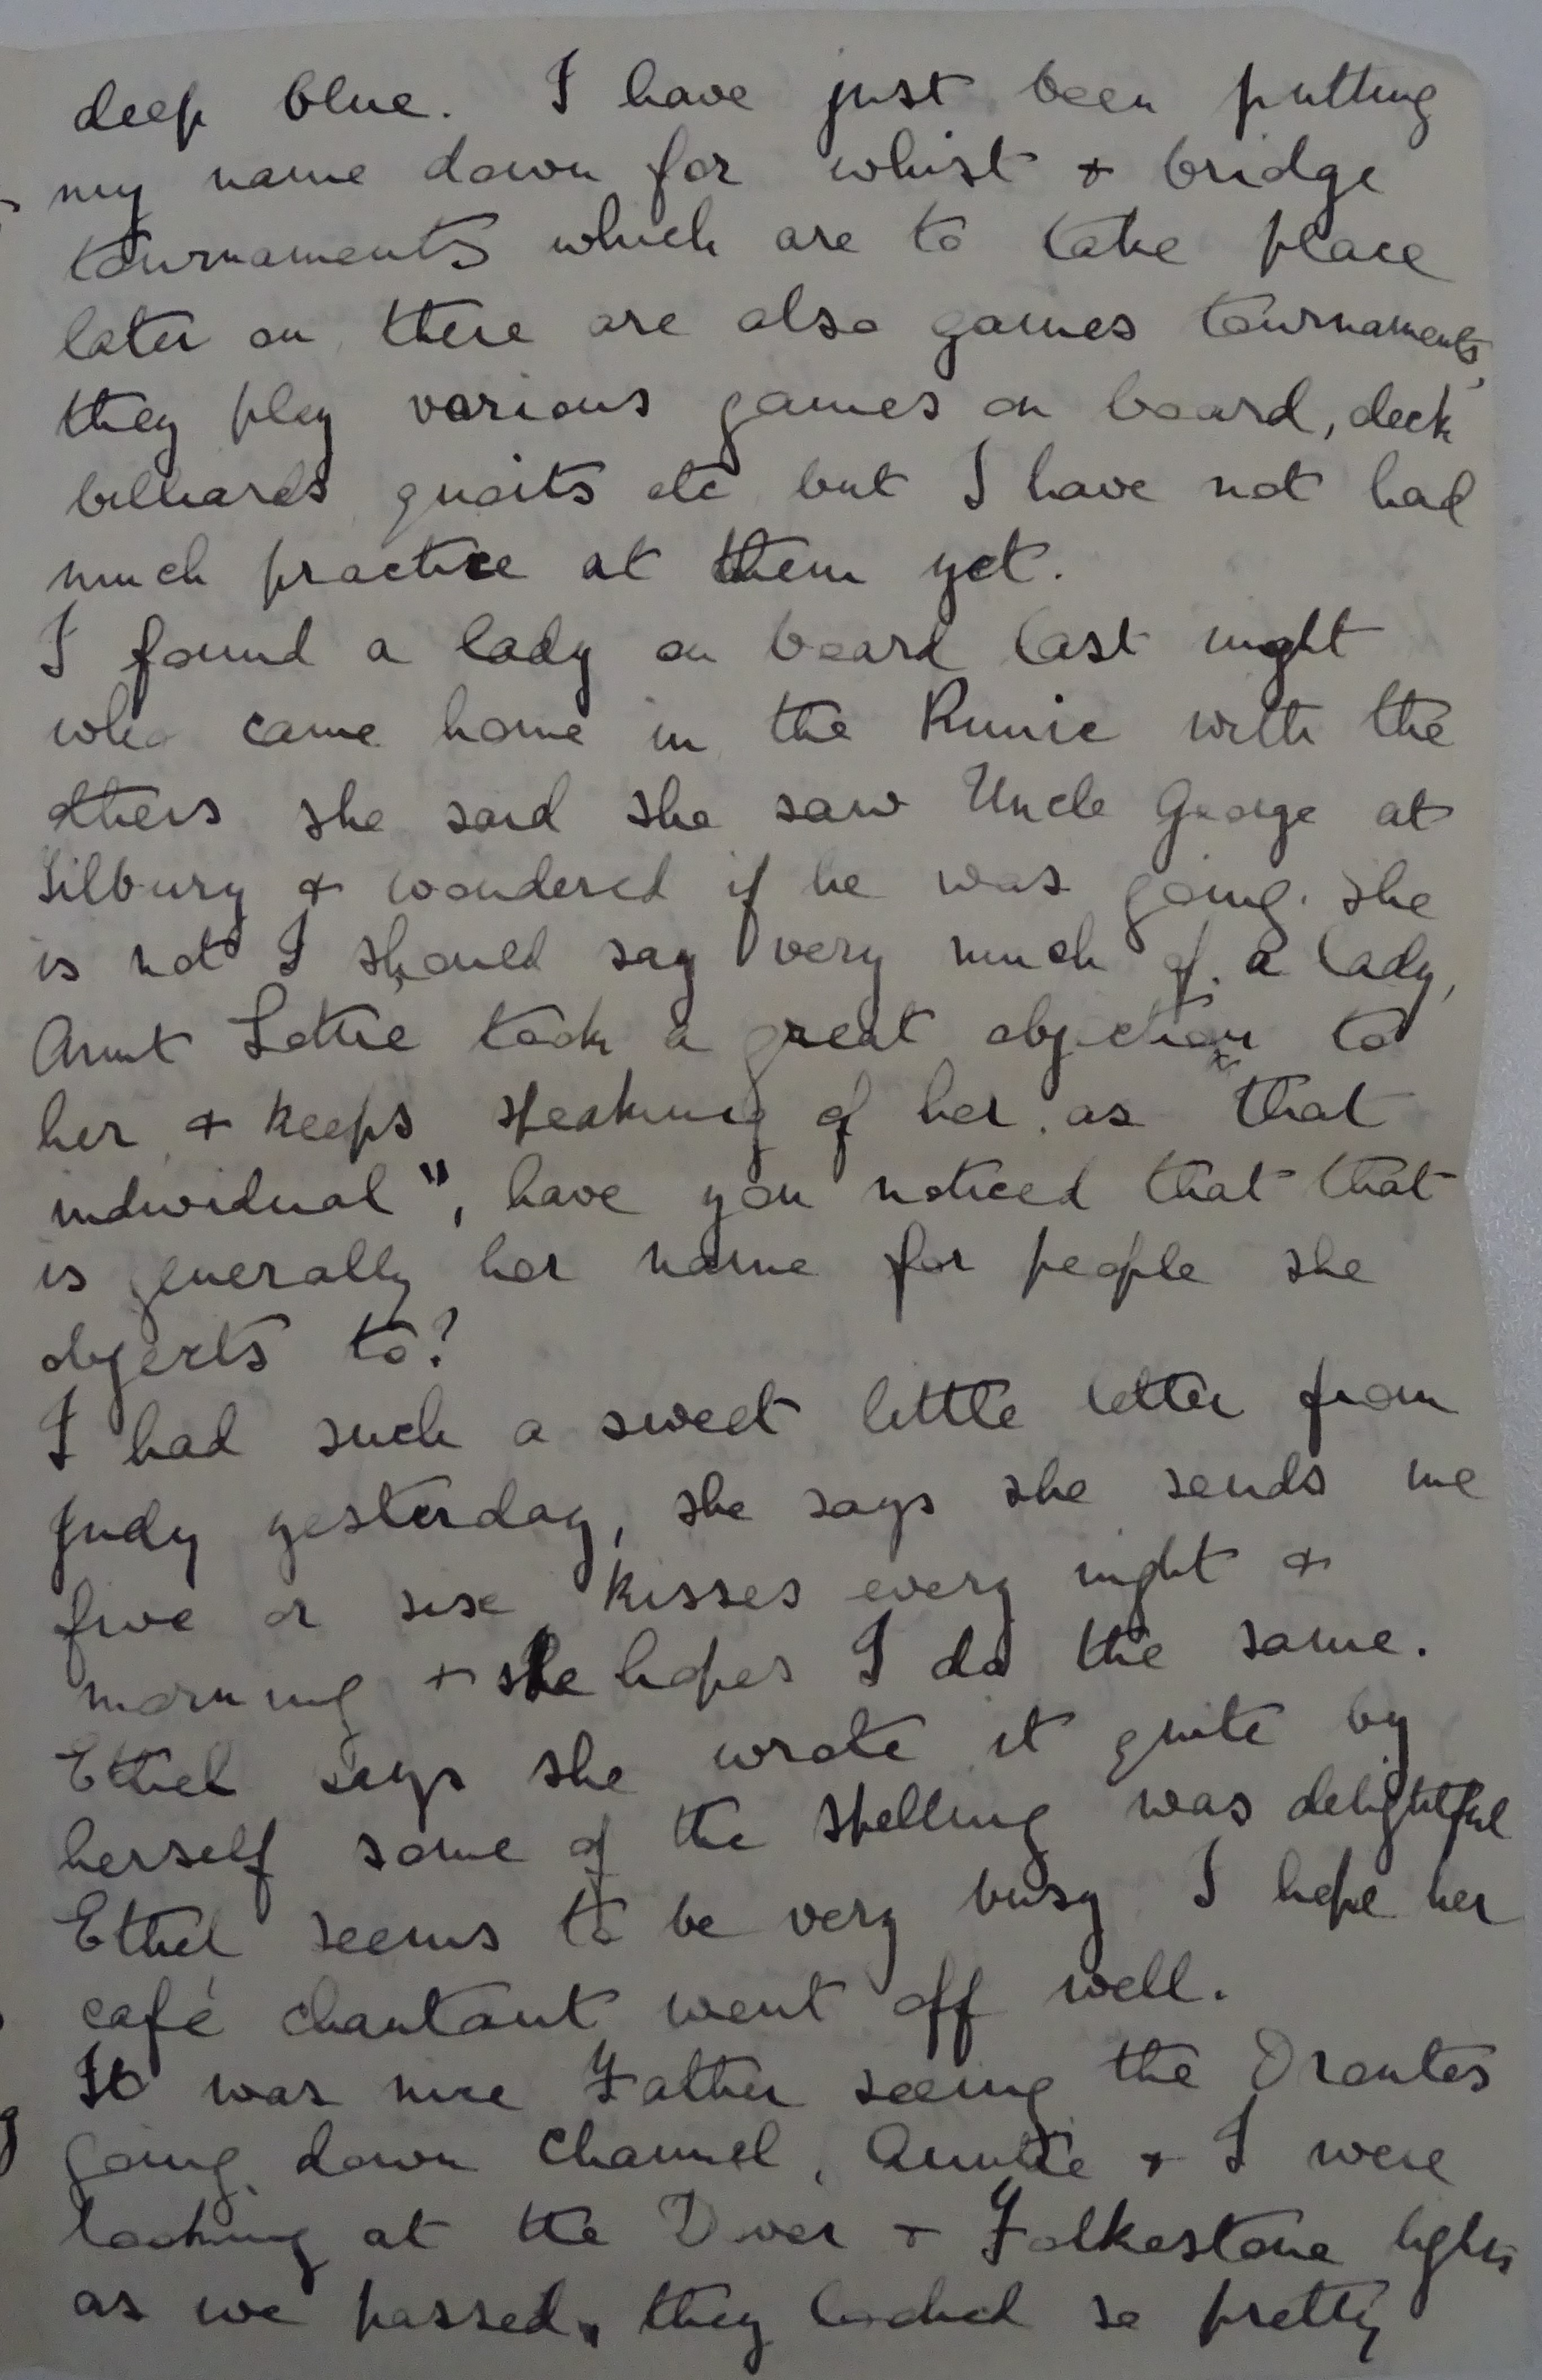 deep blue. I have just been putting
my name down for whist + bridge
tournaments which are to take place
later on, there are also games tournaments,
they play various games on board, deck
billiards quoits etc but I have not had
much practice at them yet.
I found a lady on board last night
who came home in the Runic with the
others she said she saw Uncle George at
Tilbury + wondered if he was going. She
is not I should say very much of a lady,
Aunt Lottie took a great objection to
her, + keeps speaking of her as "that
individual", have you noticed that that
is generally her name for people she
objects to?
I had such a sweet little letter from
Judy yesterday, she says she sends me
five or six kisses every night +
morning + she hopes I do the same.
Ethel says she wrote it quite by
herself some of the spelling was delightful
Ethel seems to be very busy I hope her
café chantant went off well.
It was nice Father seeing the Orontes
going down Channel, Auntie + I were
looking at the Dover + Folkestone lights
as we passed, they looked so pretty